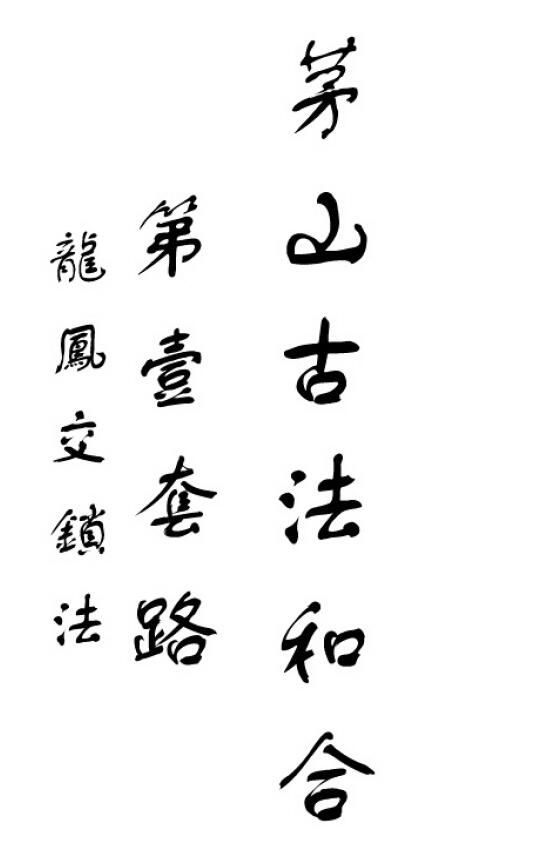 茅山古法和合
第壹套路
龍鳳交鎖法